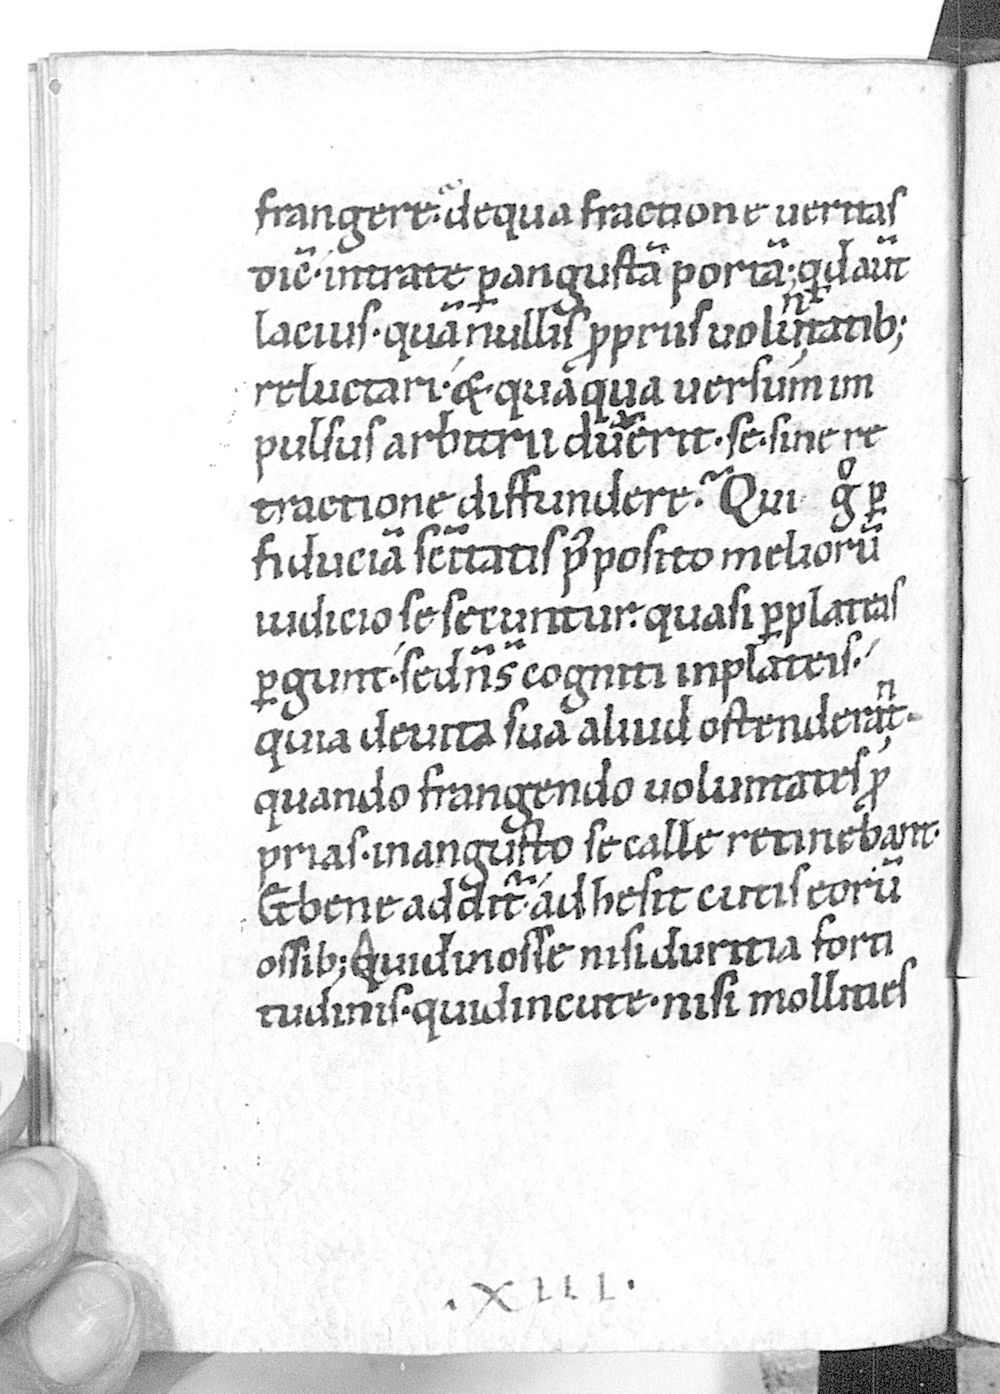 frangere. dequa fractione ueritas
dic̄· intrate ꝑangustā portā· qd aūt
lacius· quā nullis ꝓpriis uoluntatib;
reluctari· & quāqua uersum im
pulsus arbitrii dux̄erit· se· sine re
tractione diffundere. Qui gͦ ꝑ
fiduciā sc̄itatis p̄posito meliorū
iudicio se secuntur. quasi ꝑplateas
ꝑgunt· sed n̄ s̄ cogniti inplateis·
quia deuita sua aliud ostenderant·
quando frangendo uoluntates ꝓ
prias· inangusto se calle retinebant·
Et bene addit̄· adhesit cutis eorū
ossib; Quid inosse nisi duritia forti
tudinis· quid incute· nisi mollities
· XIII ·